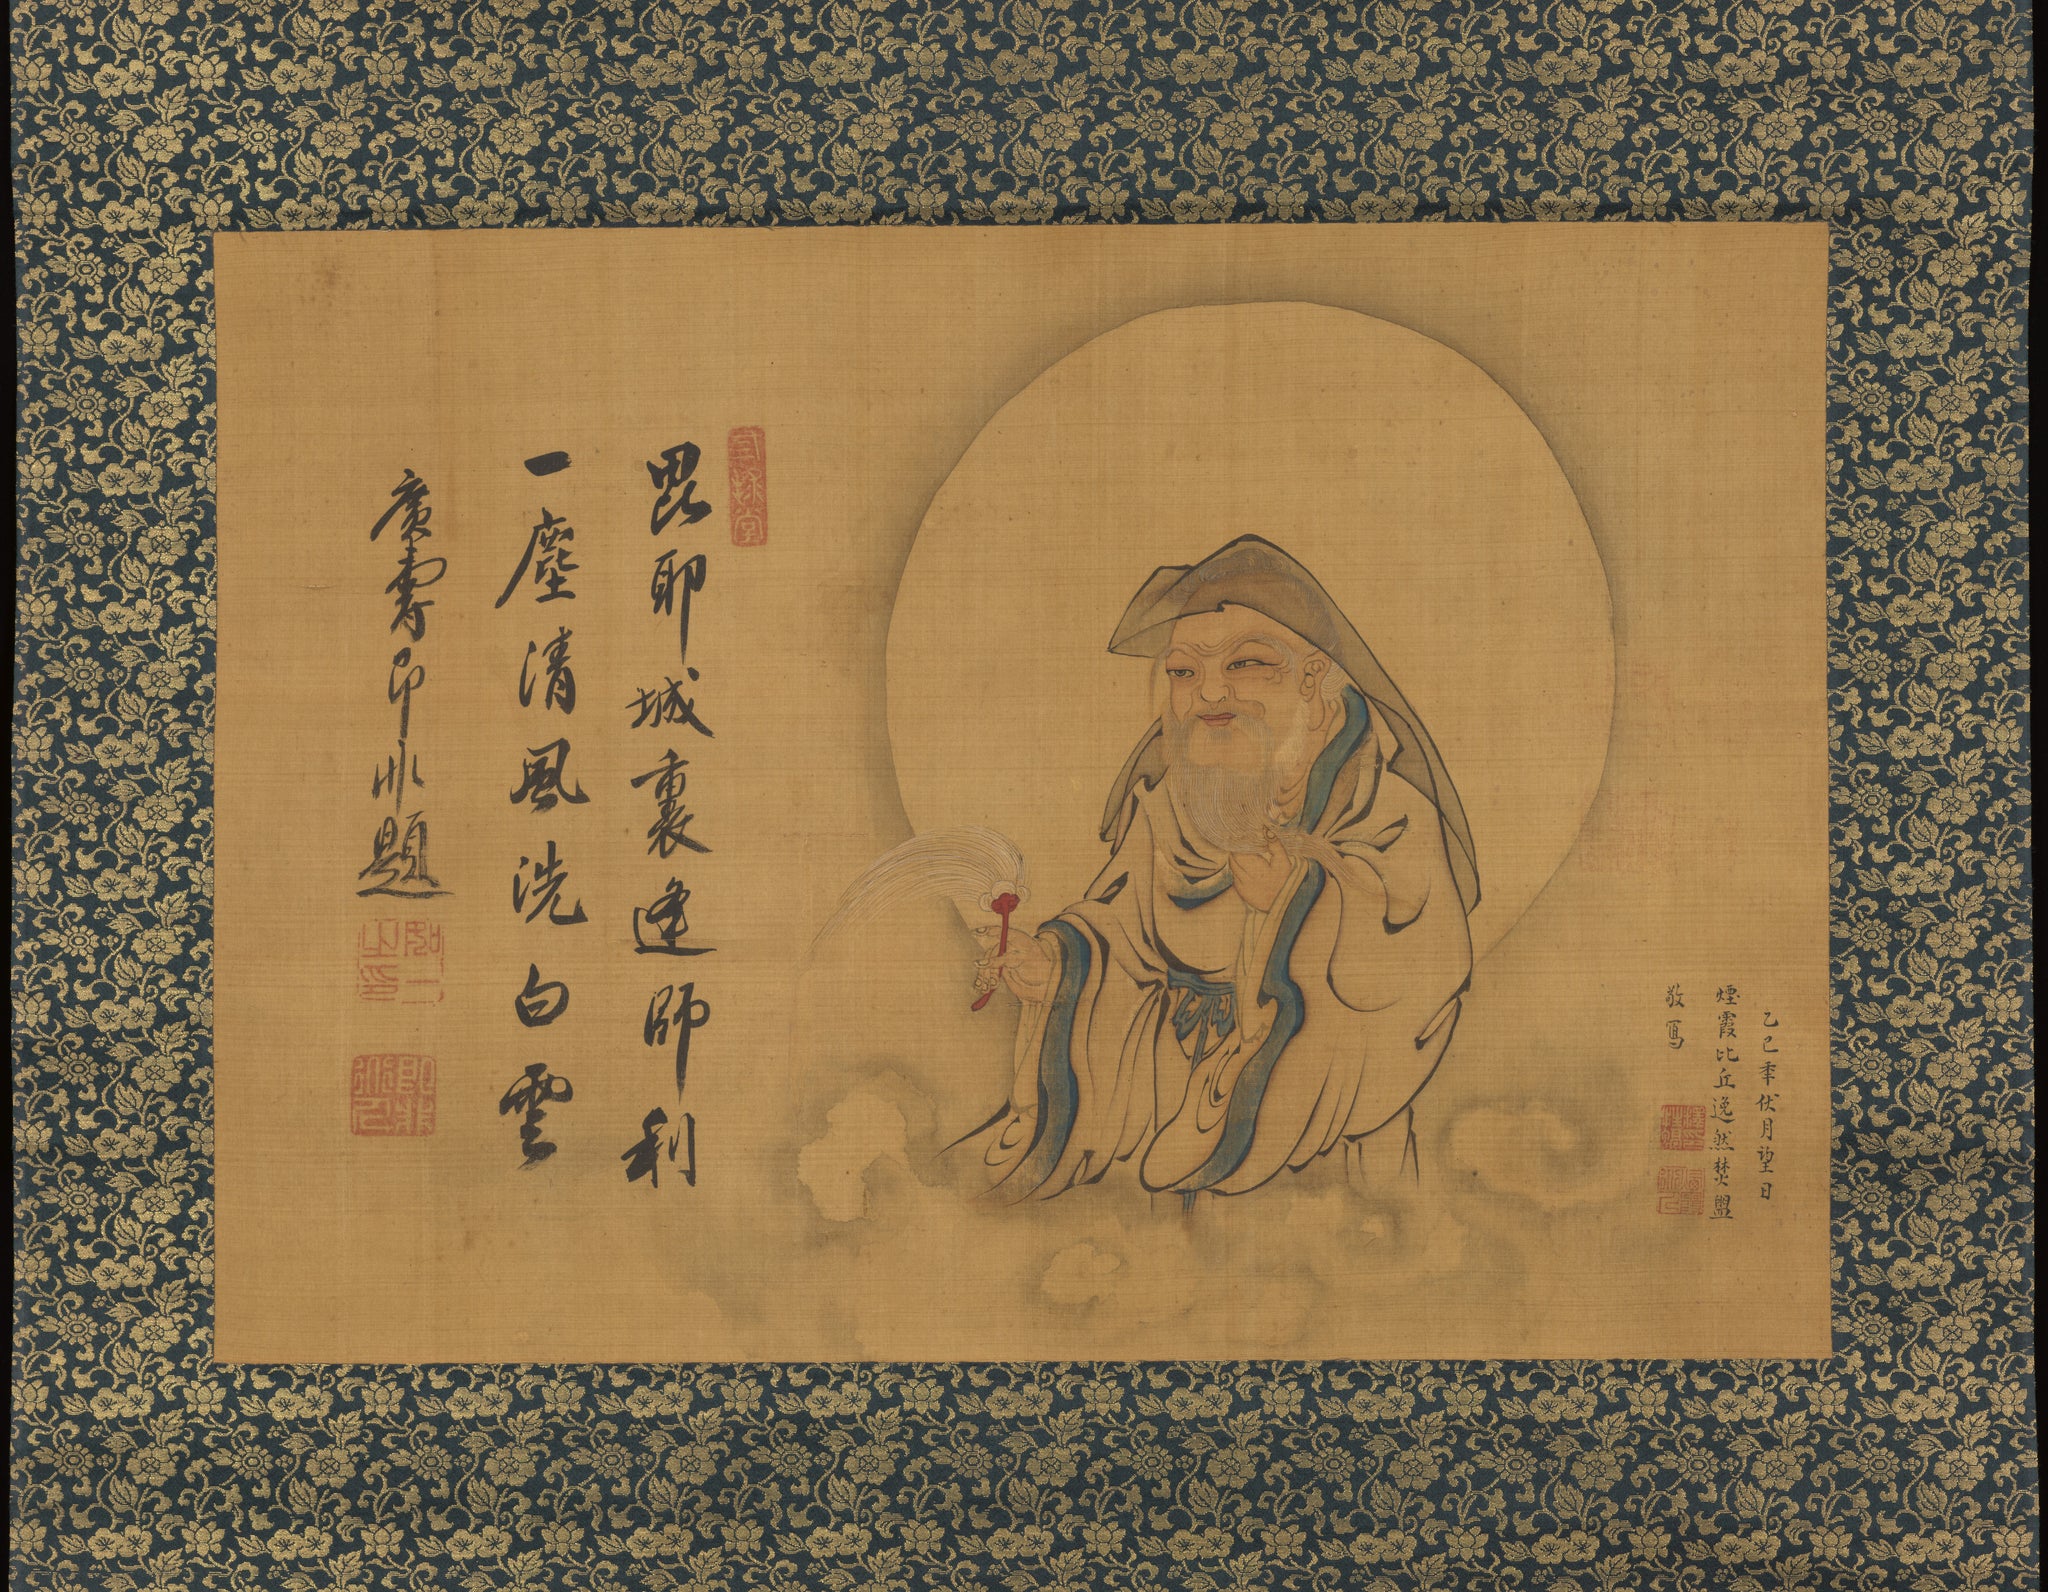 乙巳年伏月望日
煙霞比丘逸然焚盥
敬寫
毘耶城裏逢師利
一塵清風洗白雲
廣壽即非題
即非